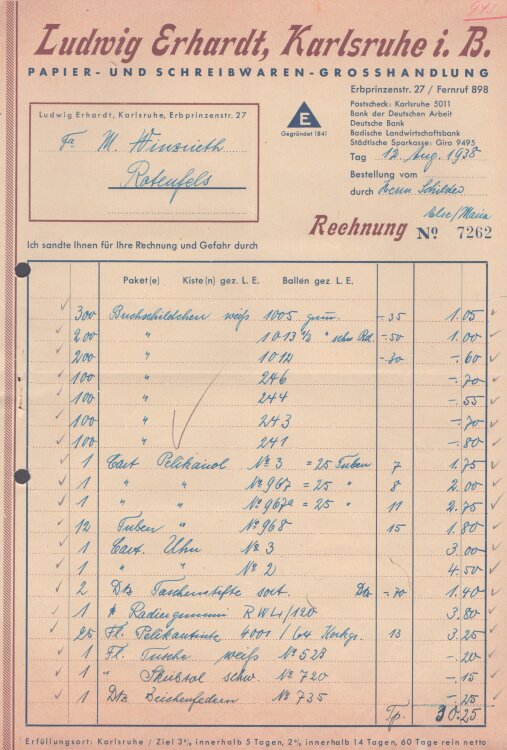 Ludwig Erhardt, Karlsruhe i. B.
PAPIER- UND SCHREIBWAREN-GROSSHANDLUNG
Erbprinzenstr. 27 / Fernruf 898
Postscheck: Karlsruhe 5011
Bank der Deutschen Arbeit
Deutsche Bank
Badische Landwirtschaftsbank
Städtische Sparkasse: Giro 9495
Ludwig Erhardt, Karlsruhe, Erbprinzenstr. 27
E
Gegründet 1841
Fa M. Winsrieth
Rotenfels
Tag 12. Aug. 1938
Bestellung vom
durch Herrn Schilder
Else/Maria
Rechnung Nº 7262
Ich sandte Ihnen für Ihre Rechnung und Gefahr durch
Paket(e) Kiste(n) gez. L. E. Ballen gez. L. E.
300 Buchschildchen weiß 1005 gum. -.35 1.05
200 " 1013 1/2 " schw. Rd. -.50 1.00
200 " 1012 -.30 -.60
100 " 246 -.70
100 " 244 -.55
100 " 243 -.70
100 " 241 -.80
1 Cart Pelikanol Nº 3 = 25 Tuben 7 1.75
1 " " Nº 967 = 25 " 8 2.00
1 " " Nº 967a = 25 " 11 2.75
12 Tuben " Nº 968 15 1.80
1 Cart. Uhu Nº 3 3.00
1 " Nº 2 4.50
2 Dtz Taschenstifte sort. Dtz -.70 1.40
1 Radiergummi RWL/120 3.80
25 Fl. Pelikantinte 4001 / 64 13 3.25
1 Fl. Tusche weiß Nº 523 -.20
1 " schw. Nº 720 -.15
1 Dtz Zeichenfedern Nº 735 -.25
30.25
Erfüllungsort: Karlsruhe / Ziel 3% innerhalb 5 Tagen, 2% innerhalb 14 Tagen, 60 Tage rein netto